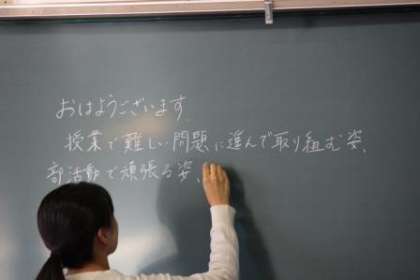 おはようございます。
授業で難しい問題に進んで取り組む姿、
部活動で頑張る姿、